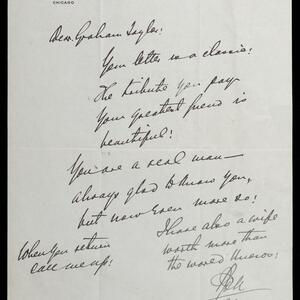 CHICAGO
Dear Graham Taylor:
Your letter is a classic!
The tribute you pay
Your greatest friend is
beautiful!
You are a real man—
always glad to know you,
but now even more so!
I have also a wife
worth more than
the world knows!
When you return
call me up!